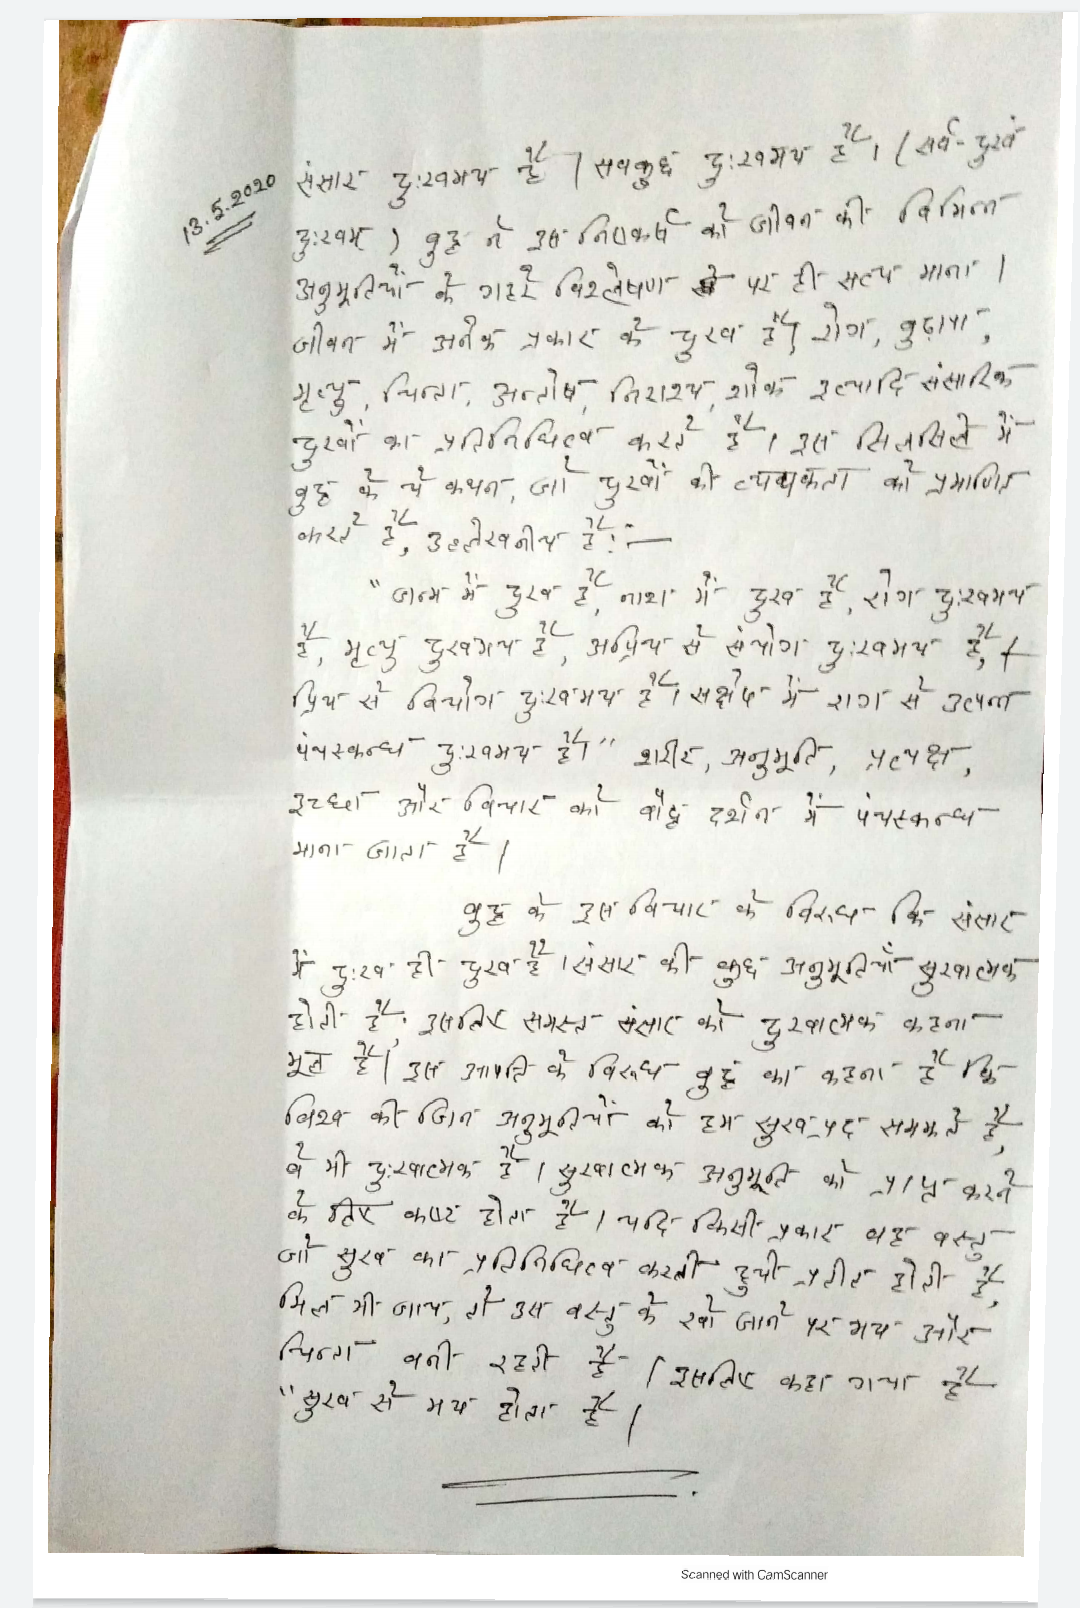 13.5.2020
संसार दु:खमय है। सबकुछ दु:खमय है। (सर्व-दुखं
दु:खम्) बुद्ध ने इस निष्कर्ष को जीवन की विभिन्न
अनुभूतियों के गहरे विश्लेषण पर ही सत्य माना।
जीवन में अनेक प्रकार के दुख हैं। रोग, बुढ़ापा,
मृत्यु, चिन्ता, अन्तोष, निराश्य, शोक इत्यादि संसारिक
दुखों का प्रतिनिधित्व करते हैं। इस सिलसिले में
बुद्ध के ये कथन, जो दुखों की व्यापकता को प्रमाणित
करते हैं, उल्लेखनीय हैं:—
"जन्म में दुख है, नाश में दुख है, रोग दु:खमय
है, मृत्यु दुखमय है, अप्रिय से संयोग दु:खमय है,
प्रिय से वियोग दु:खमय है। सक्षेप में राग से उत्पन्न
पंचस्कन्ध दु:खमय है।" शरीर, अनुभूति, प्रत्यक्ष,
इच्छा और विचार को बौद्ध दर्शन में पंचस्कन्ध
माना जाता है।
बुद्ध के इस विचार के विरूध कि संसार
में दु:ख ही दुख है। संसार की कुछ अनुभूतियाँ सुखात्मक
होती हैं; इसलिए समस्त संसार को दुखात्मक कहना
भूल है। इस आपति के विरूध बुद्ध का कहना है कि
विश्व की जिन अनुभूतियों को हम सुख-प्रद समझते हैं,
वे भी दु:खात्मक हैं। सुखात्मक अनुभूति को प्राप्त करने
के लिए कष्ट होता है। यदि किसी प्रकार वह वस्तु
जो सुख का प्रतिनिधित्व करती हुयी प्रतीत होती है,
मिल भी जाय, तो उस वस्तु के खो जाने पर भय और
चिन्ता बनी रहती है। इसलिए कहा गया है
"सुख से भय होता है।
Scanned with CamScanner